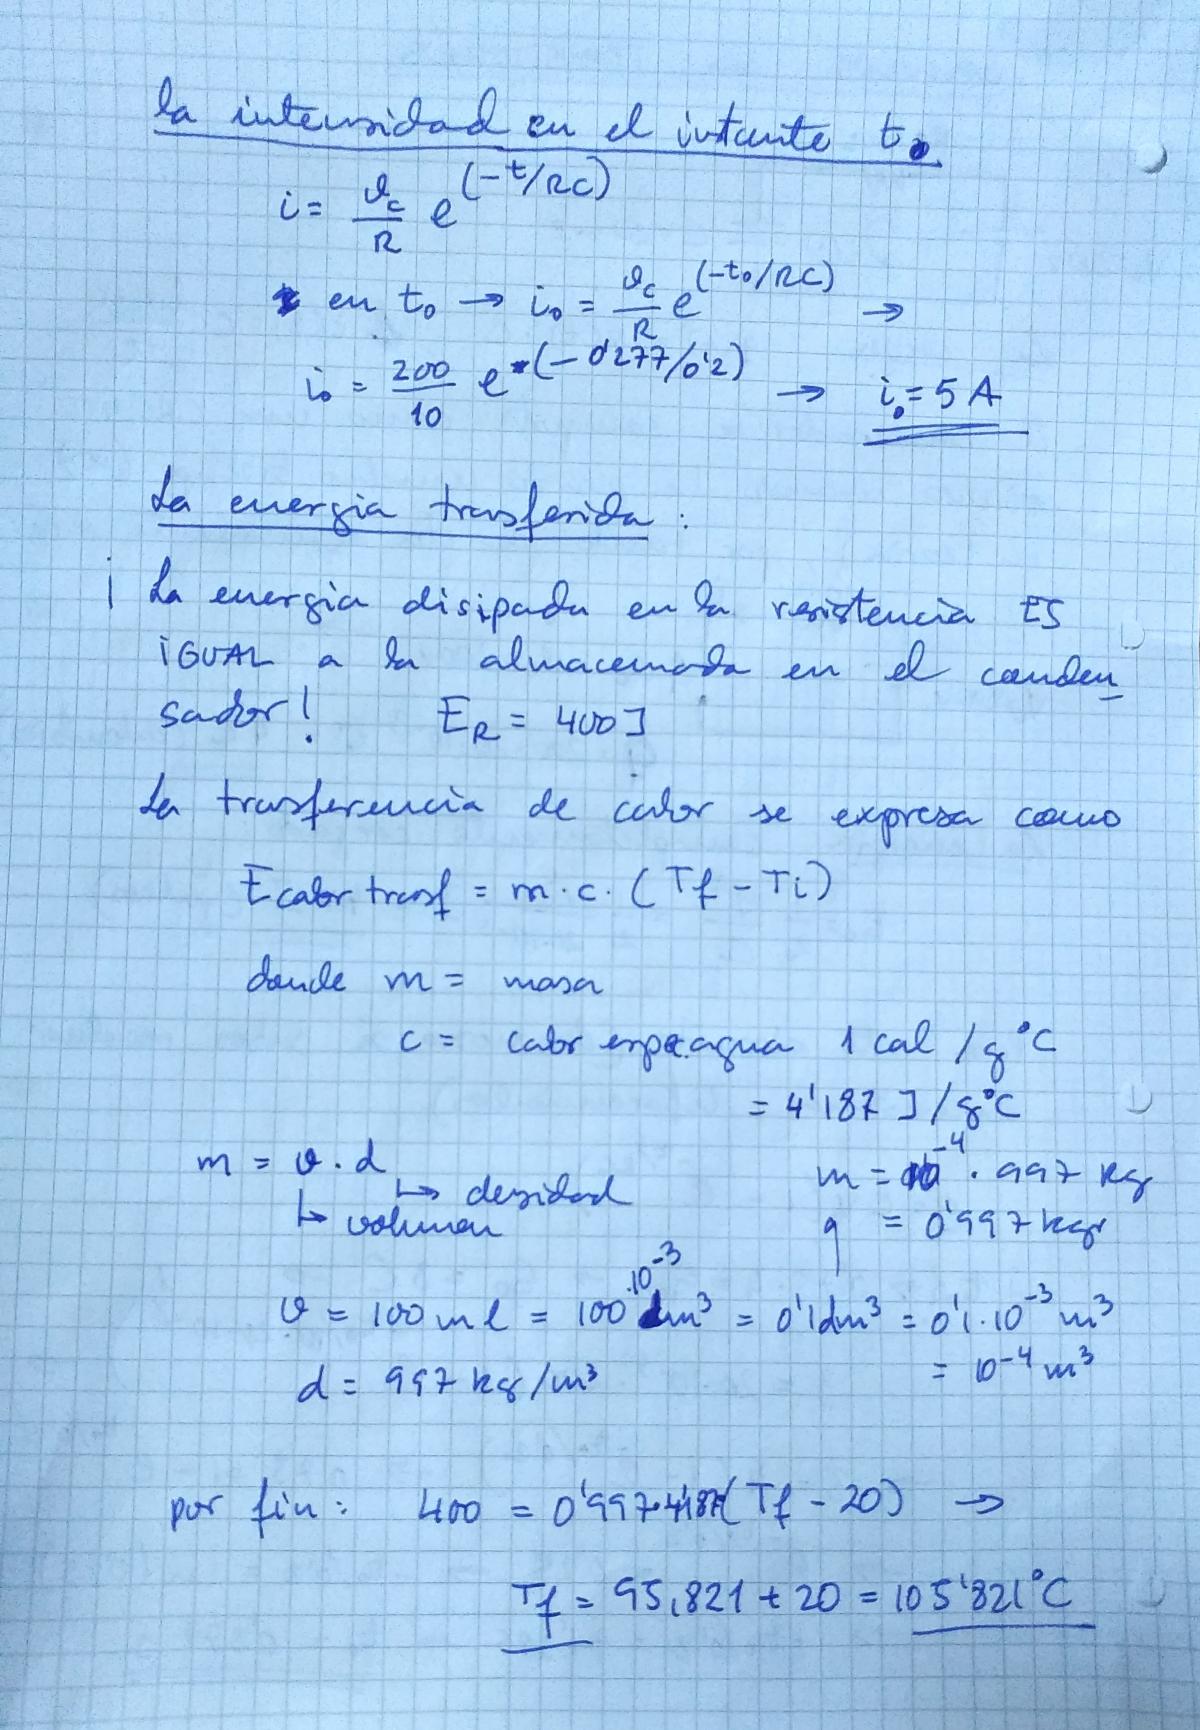 la intensidad en el intante t₀
i = ϑc/R e^(-t/RC)
en t₀ → i₀ = ϑc/R e^(-t₀/RC) →
i₀ = 200/10 e^(-0'277/0'2) → i₀ = 5 A
La energia trasferida:
¡ La energia disipada en la resistencia ES
iGUAL a la almacenada en el conden_
sador! E_R = 400 J
La trasferencia de calor se expresa como
E calor trasf = m · c · (Tf - Ti)
donde m = masa
c = calor espec. agua 1 cal / g °C
= 4'187 J / g°C
m = ϑ · d
↳ densidad
↳ volumen
m = 10^-4 · 997 kg
= 0'997 kgr
ϑ = 100 ml = 100·10^-3 dm³ = 0'1 dm³ = 0'1·10^-3 m³
= 10^-4 m³
d = 997 kg/m³
por fin: 400 = 0'997·4'187 (Tf - 20) →
Tf = 95,821 + 20 = 105'821 °C